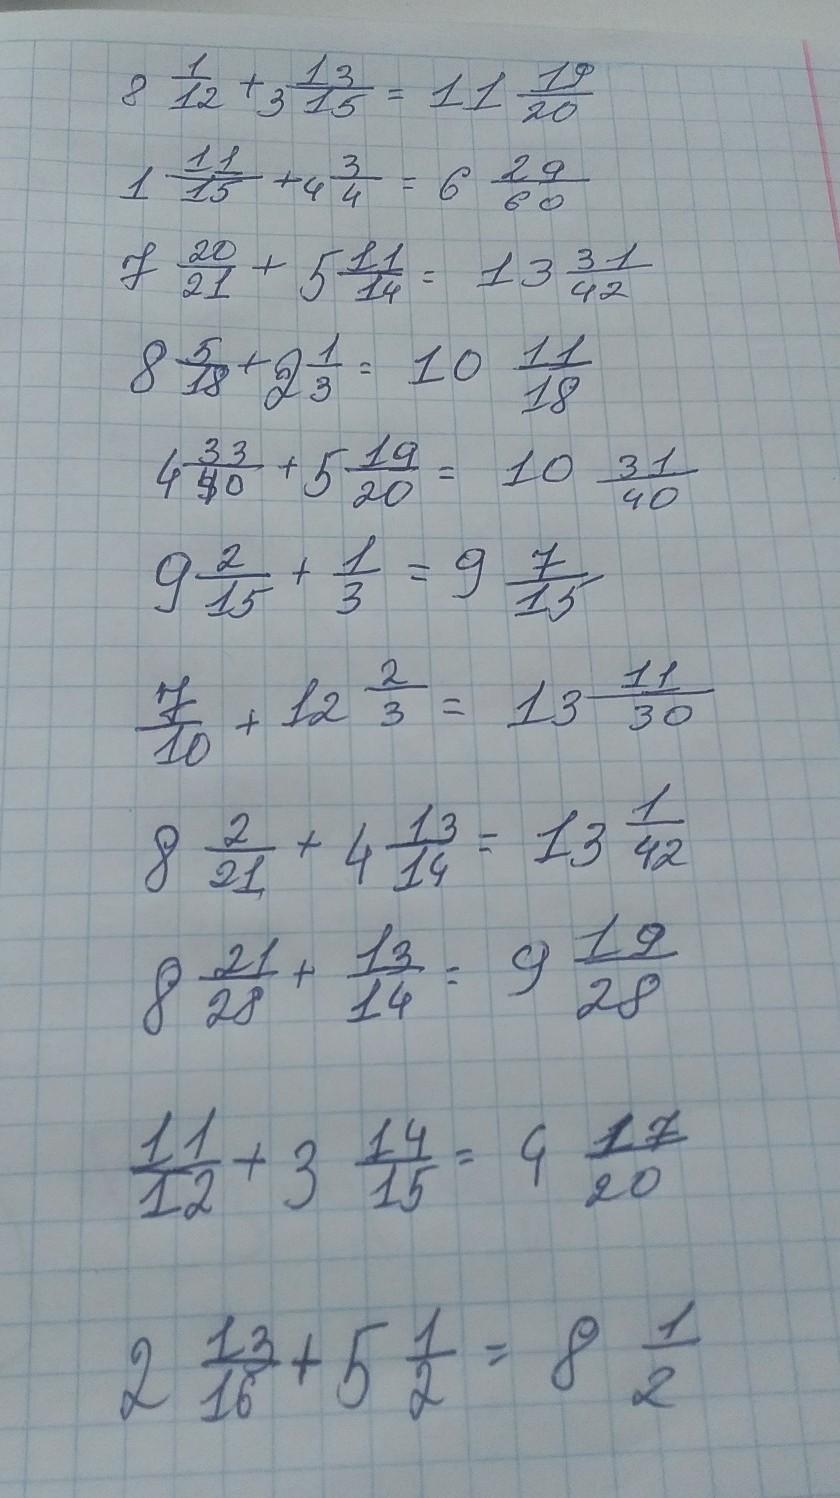 8 1/12 + 3 13/15 = 11 19/20
1 11/15 + 4 3/4 = 6 29/60
7 20/21 + 5 11/14 = 13 31/42
8 5/18 + 2 1/3 = 10 11/18
4 33/40 + 5 19/20 = 10 31/40
9 2/15 + 1/3 = 9 7/15
7/10 + 12 2/3 = 13 11/30
8 2/21 + 4 13/14 = 13 1/42
8 21/28 + 13/14 = 9 19/28
11/12 + 3 14/15 = 4 17/20
2 13/16 + 5 1/2 = 8 1/2